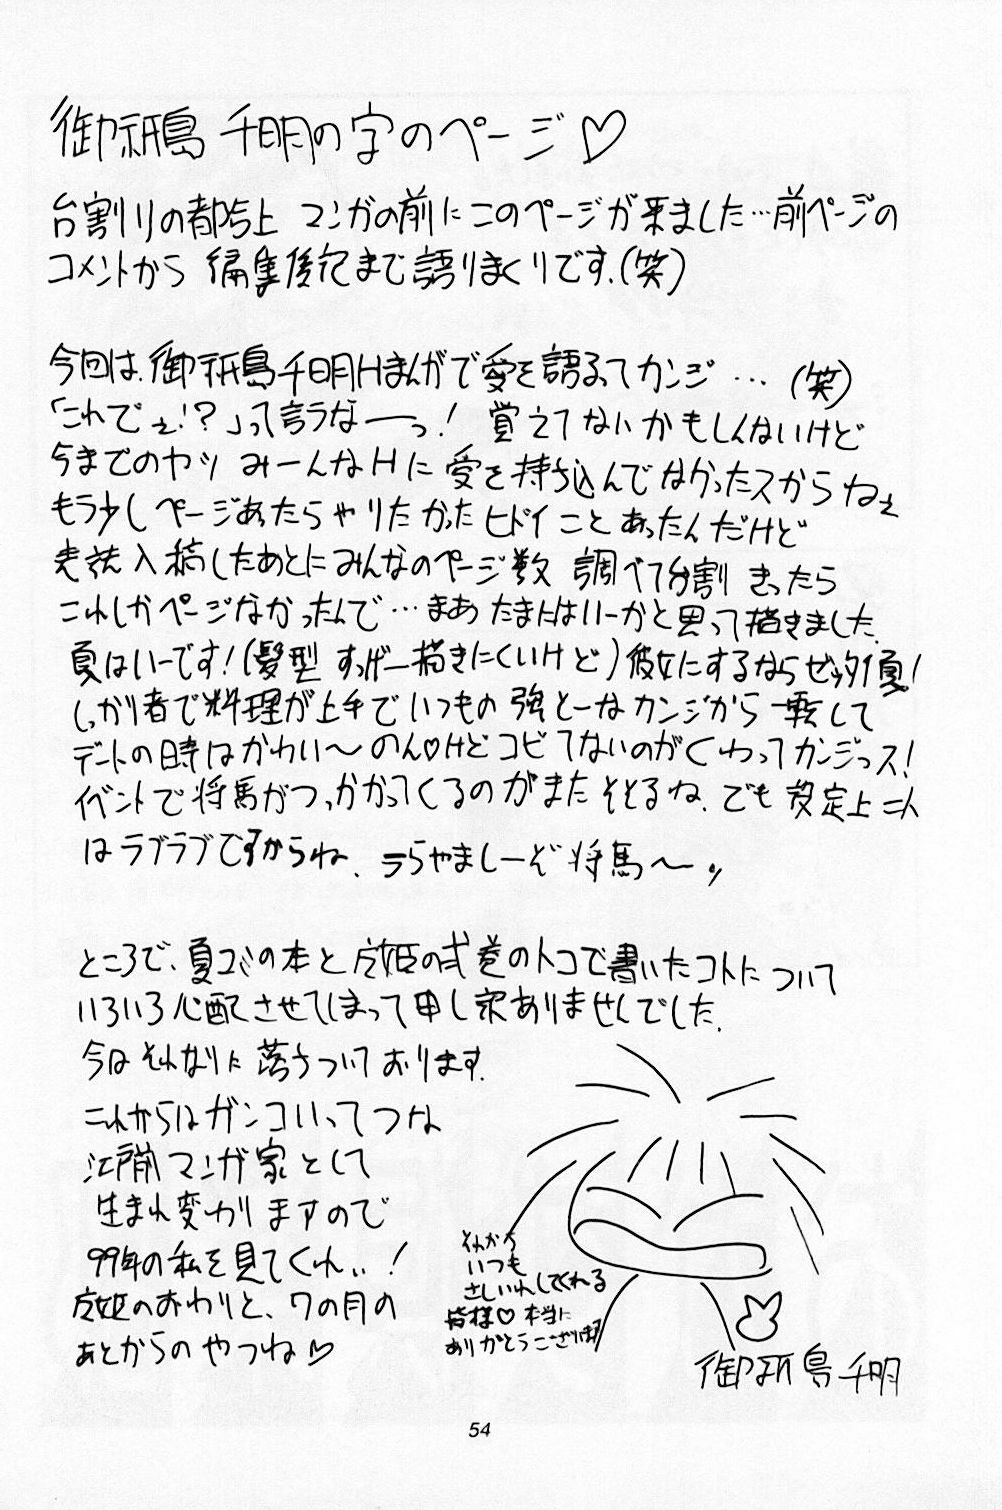 御祇島 千明の字のページ♡
台割りの都合上 マンガの前にこのページが来ました…前ページの
コメントから 編集後記まで語りまくりです.(笑)
今回は、御祇島千明Hまんがで愛を語るってカンジ…(笑)
「これでぇ!?」って言うなーっ! 覚えてないかもしんないけど
今までのヤツ みーんなHに愛を持ち込んでなかったスからねぇ
もう少しページあったらやりたかったヒドイことあったんだけど
表紙入稿したあとにみんなのページ数 調べて台割 きったら
これしかページなかったんで…まあたまにはいーかと思って描きました.
夏はいーです!(髪型 すっげー描きにくいけど)彼女にするならゼッタイ夏!
しっかり者で料理が上手でいつもの強どーなカンジから一転して
デートの時はかわい〜のん♡けどコビてないのがくわってカンジっス!
イベントで将馬がつっかかってくるのがまたそそるね.でも設定上二人
はラブラブですからね、うらやましーぞ将馬〜!!
ところで、夏コミの本と 虎姫の弐巻のトコで書いたコトについて
いろいろ心配させてしまって申し訳ありませんでした.
今はそれなりに落ちついております.
これからはガンコいってつな
江戸前マンガ家として
生まれ変わりますので
99年の私を見てくれぃ!
虎姫のおわりと、7の月の
あとからのやつね♡
それから
いつも
さしいれしてくれる
皆様♡本当に
ありがとうございます
御祇島千明
54